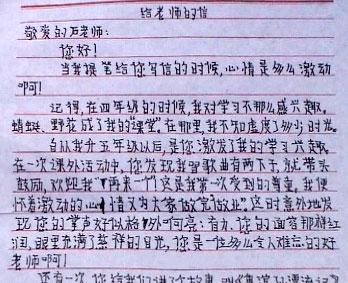 给老师的信
敬爱的石老师:
您好!
当我提笔给您写信的时候,心情是多么激动
啊!
记得,在四年级的时候,我对学习不那么感兴趣。
蜻蜓、野花成了我的"课堂"。在那里,我不知虚度了多少时光。
自从我升五年级以后,是您激发了我的学习兴趣。
在一次课外活动中,您发现我唱歌曲有两下子,就带头
鼓励,欢迎我"再来一门"这是我第一次受到的尊重,我便
怀着激动的心情又为大家做"这时意外地发
现您的掌声好似格外响亮:有力。您的面容那样红
润,眼里充满了慈祥的目光,您是一位多么令人难忘的好
老师啊!
还有一次,您给我们讲了个故事,叫